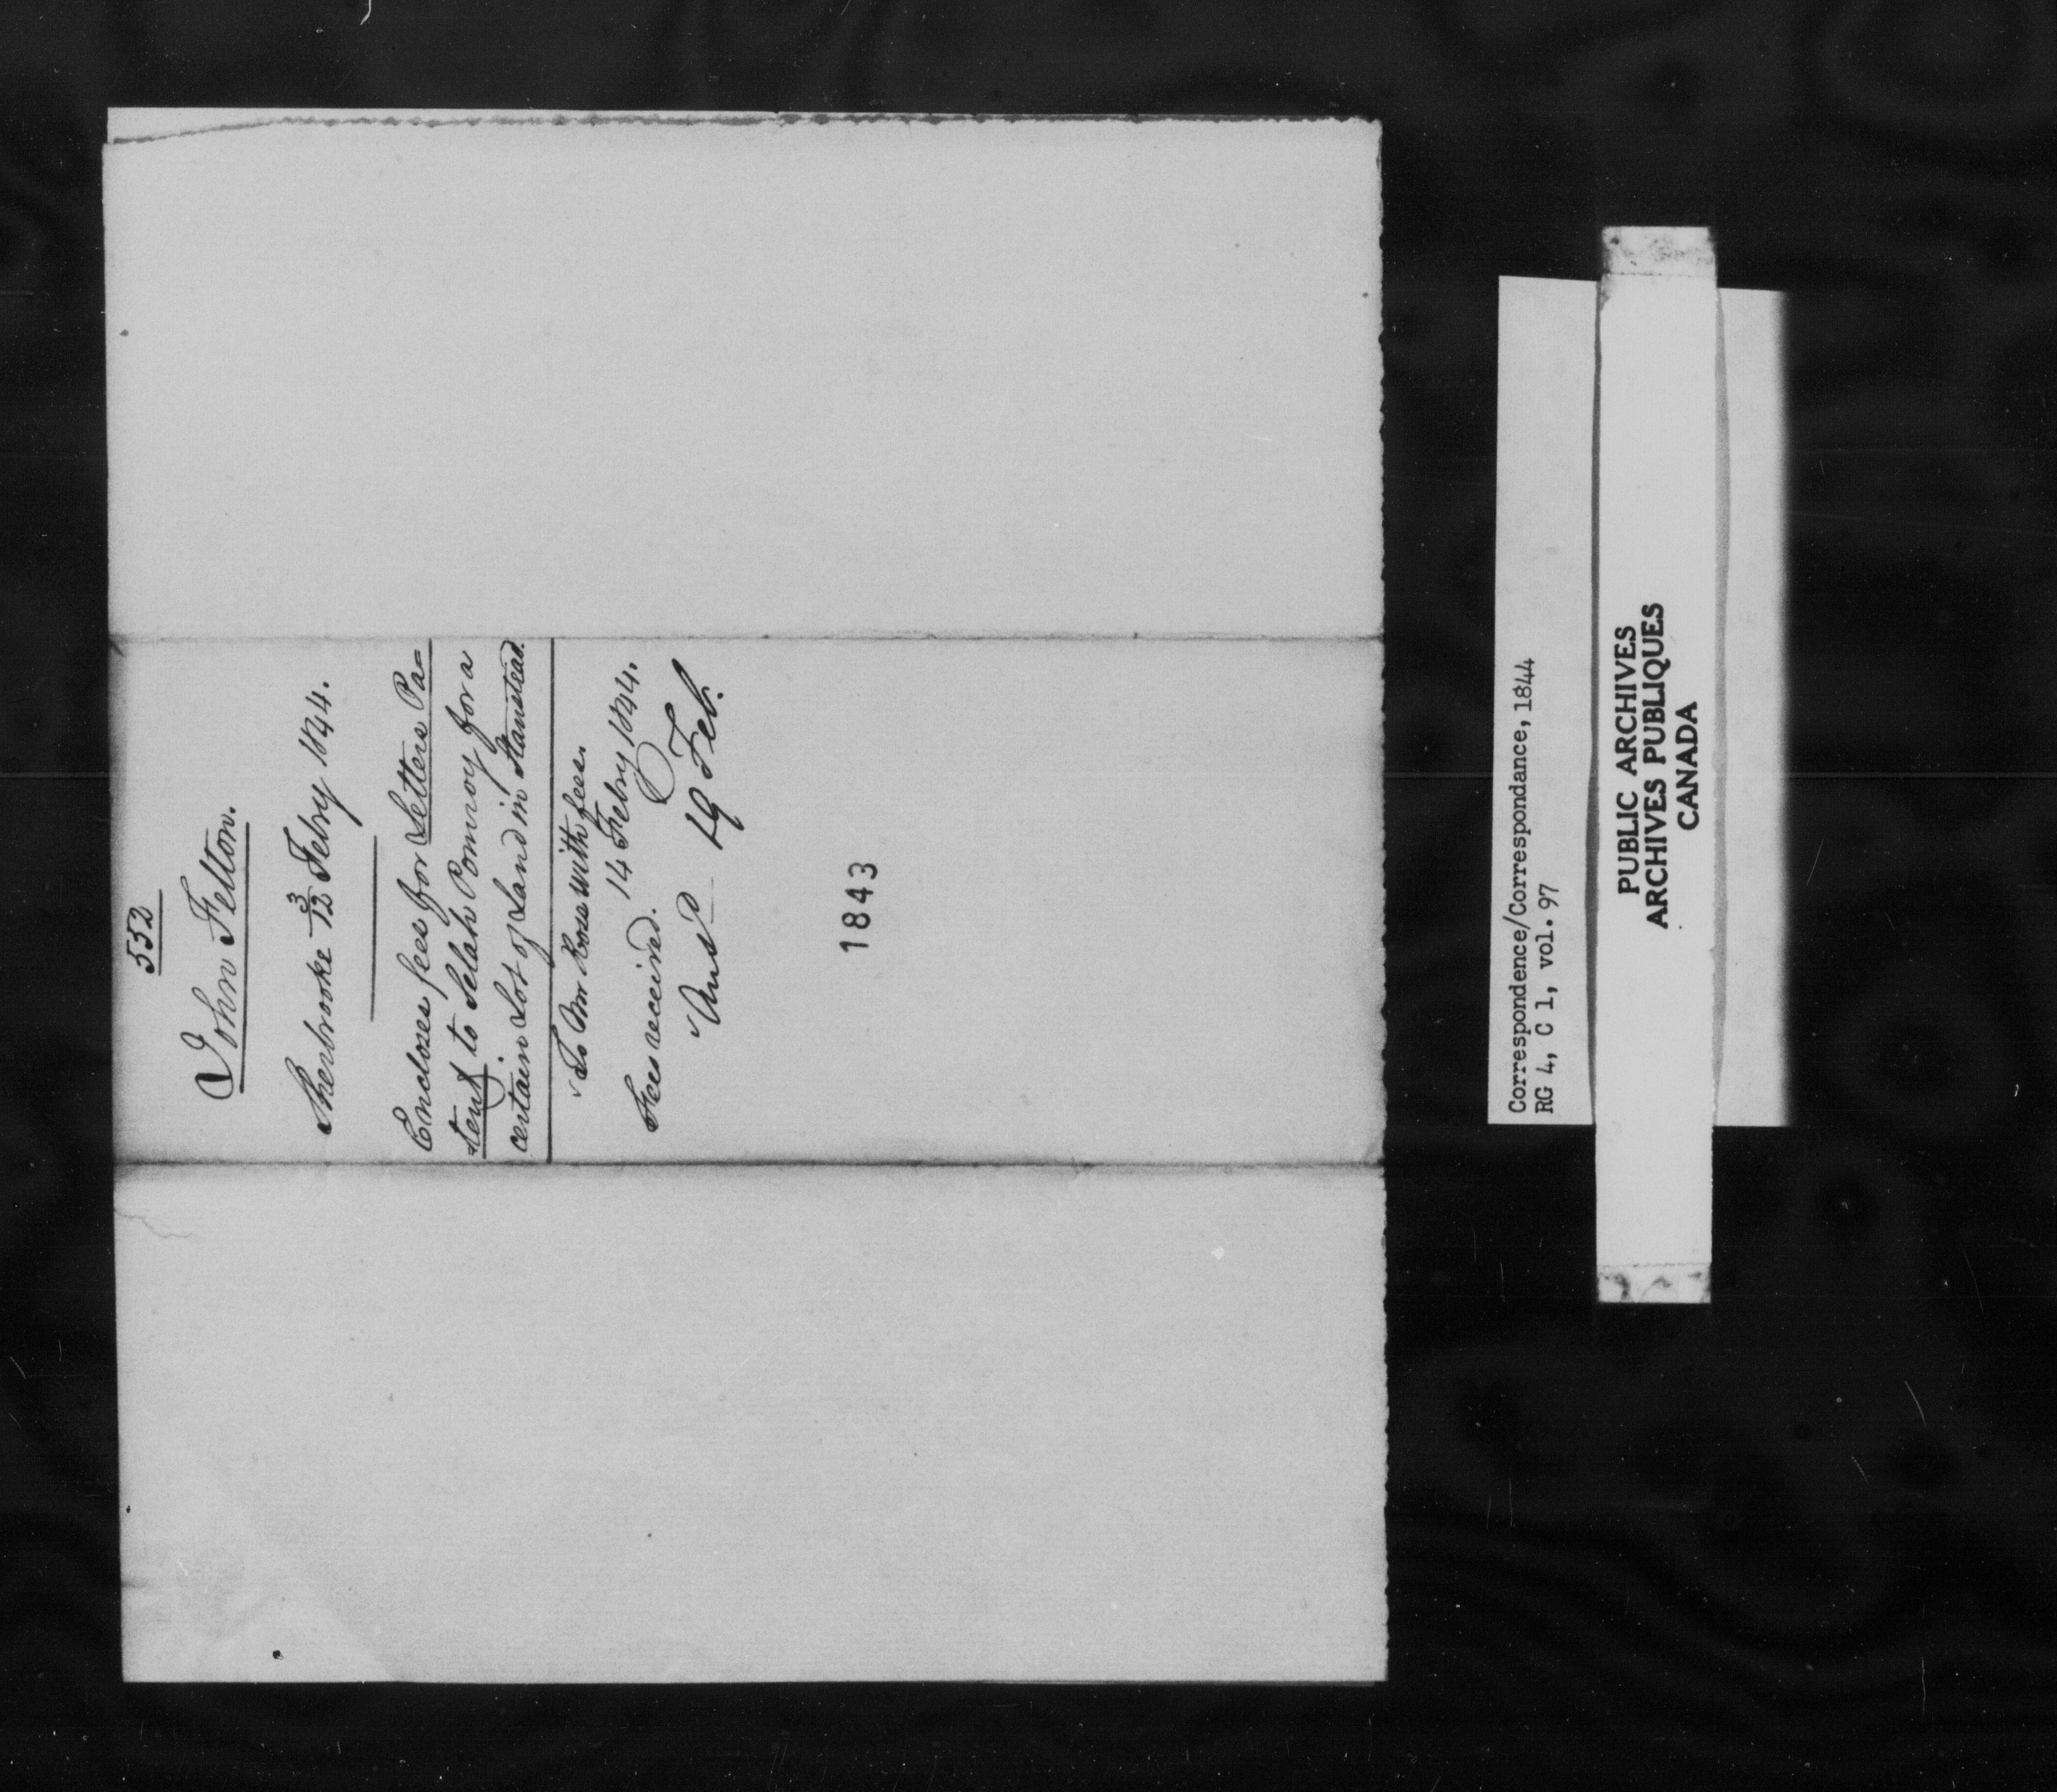 552
John Felton.
Sherbrooke 3/12 Febry 1844.
Encloses fees for Letters Pa=
tent to Selah Pomroy for a
certain Lot of Land in Stanstead.
To Mr Ross with fees.
Fees received. 14 Febry 1844.
Ansd 19 Feb.
1843
Correspondence/Correspondance, 1844
RG 4, C 1, vol. 97
PUBLIC ARCHIVES
ARCHIVES PUBLIQUES
CANADA